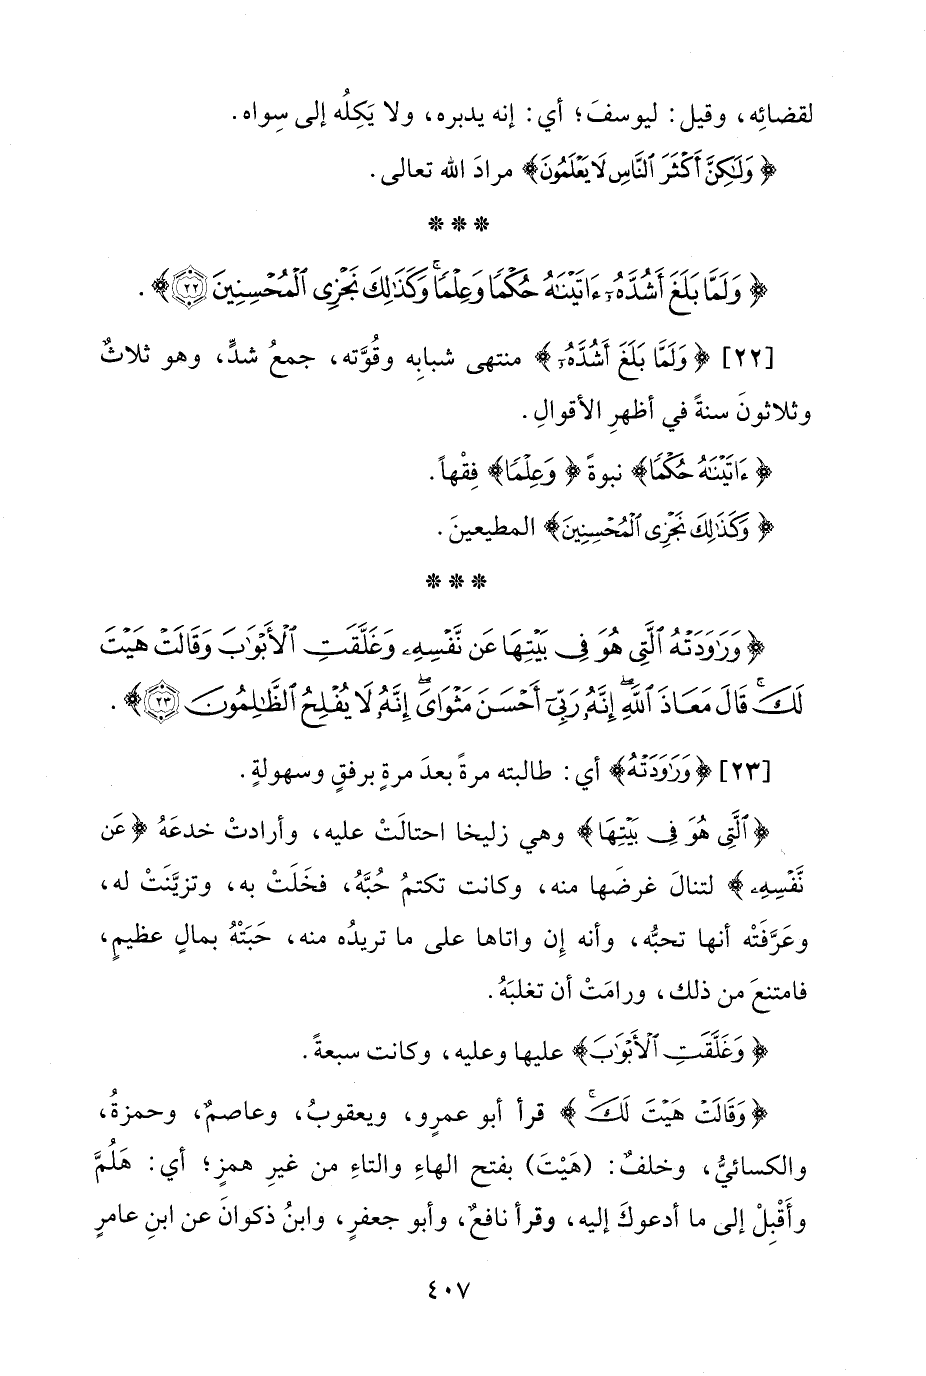 لقضائِه، وقيل: ليوسفَ؛ أي: إنه يدبره، ولا يَكِلُه إلى سِواه.
﴿وَلَٰكِنَّ أَكْثَرَ ٱلنَّاسِ لَا يَعْلَمُونَ﴾ مرادَ الله تعالى.
* * *
﴿وَلَمَّا بَلَغَ أَشُدَّهُۥٓ ءَاتَيْنَٰهُ حُكْمًا وَعِلْمًا ۚ وَكَذَٰلِكَ نَجْزِى ٱلْمُحْسِنِينَ ٢٢﴾.
[٢٢] ﴿وَلَمَّا بَلَغَ أَشُدَّهُۥٓ﴾ منتهى شبابِه وقُوَّته، جمعُ شدٍّ، وهو ثلاثٌ
وثلاثونَ سنةً في أظهرِ الأقوالِ.
﴿ءَاتَيْنَٰهُ حُكْمًا﴾ نبوةً ﴿وَعِلْمًا﴾ فِقْهاً.
﴿وَكَذَٰلِكَ نَجْزِى ٱلْمُحْسِنِينَ﴾ المطيعينَ.
* * *
﴿وَرَٰوَدَتْهُ ٱلَّتِى هُوَ فِى بَيْتِهَا عَن نَّفْسِهِۦ وَغَلَّقَتِ ٱلْأَبْوَٰبَ وَقَالَتْ هَيْتَ
لَكَ ۚ قَالَ مَعَاذَ ٱللَّهِ ۖ إِنَّهُۥ رَبِّىٓ أَحْسَنَ مَثْوَاىَ ۖ إِنَّهُۥ لَا يُفْلِحُ ٱلظَّٰلِمُونَ ٢٣﴾.
[٢٣] ﴿وَرَٰوَدَتْهُ﴾ أي: طالبته مرةً بعدَ مرةٍ برفقٍ وسهولةٍ.
﴿ٱلَّتِى هُوَ فِى بَيْتِهَا﴾ وهي زليخا احتالَتْ عليه، وأرادتْ خدعَهُ ﴿عَن
نَّفْسِهِۦ﴾ لتنالَ غرضَها منه، وكانت تكتمُ حُبَّهُ، فخَلَتْ به، وتزيَّنَتْ له،
وعَرَّفَتْه أنها تحبُّه، وأنه إن واتاها على ما تريدُه منه، حَبَتْهُ بمالٍ عظيمٍ،
فامتنعَ من ذلك، ورامَتْ أن تغلبَهُ.
﴿وَغَلَّقَتِ ٱلْأَبْوَٰبَ﴾ عليها وعليه، وكانت سبعةً.
﴿وَقَالَتْ هَيْتَ لَكَ ۚ﴾ قرأ أبو عمرٍو، ويعقوبُ، وعاصمٌ، وحمزةُ،
والكسائيُّ، وخلفٌ: (هَيْتَ) بفتح الهاءِ والتاءِ من غيرِ همزٍ؛ أي: هَلُمَّ
وأَقْبِلْ إلى ما أدعوكَ إليه، وقرأ نافعٌ، وأبو جعفرٍ، وابنُ ذكوانَ عن ابنِ عامرٍ
٤٠٧